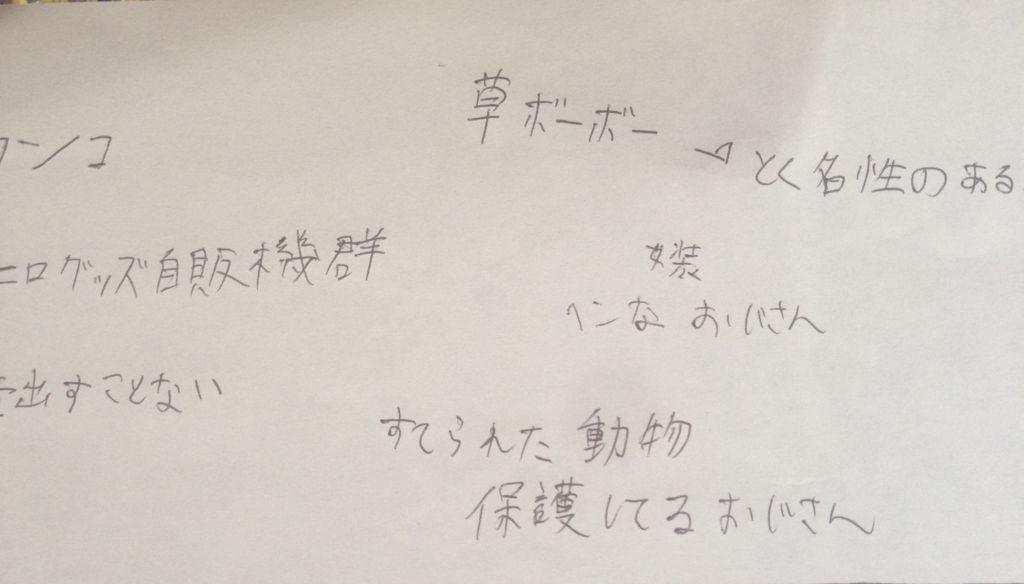 草ボーボー
とく名性のある
ンコ
エログッズ自販機群
女装
ヘンな おじさん
出すことない
すてられた 動物
保護してる おじさん